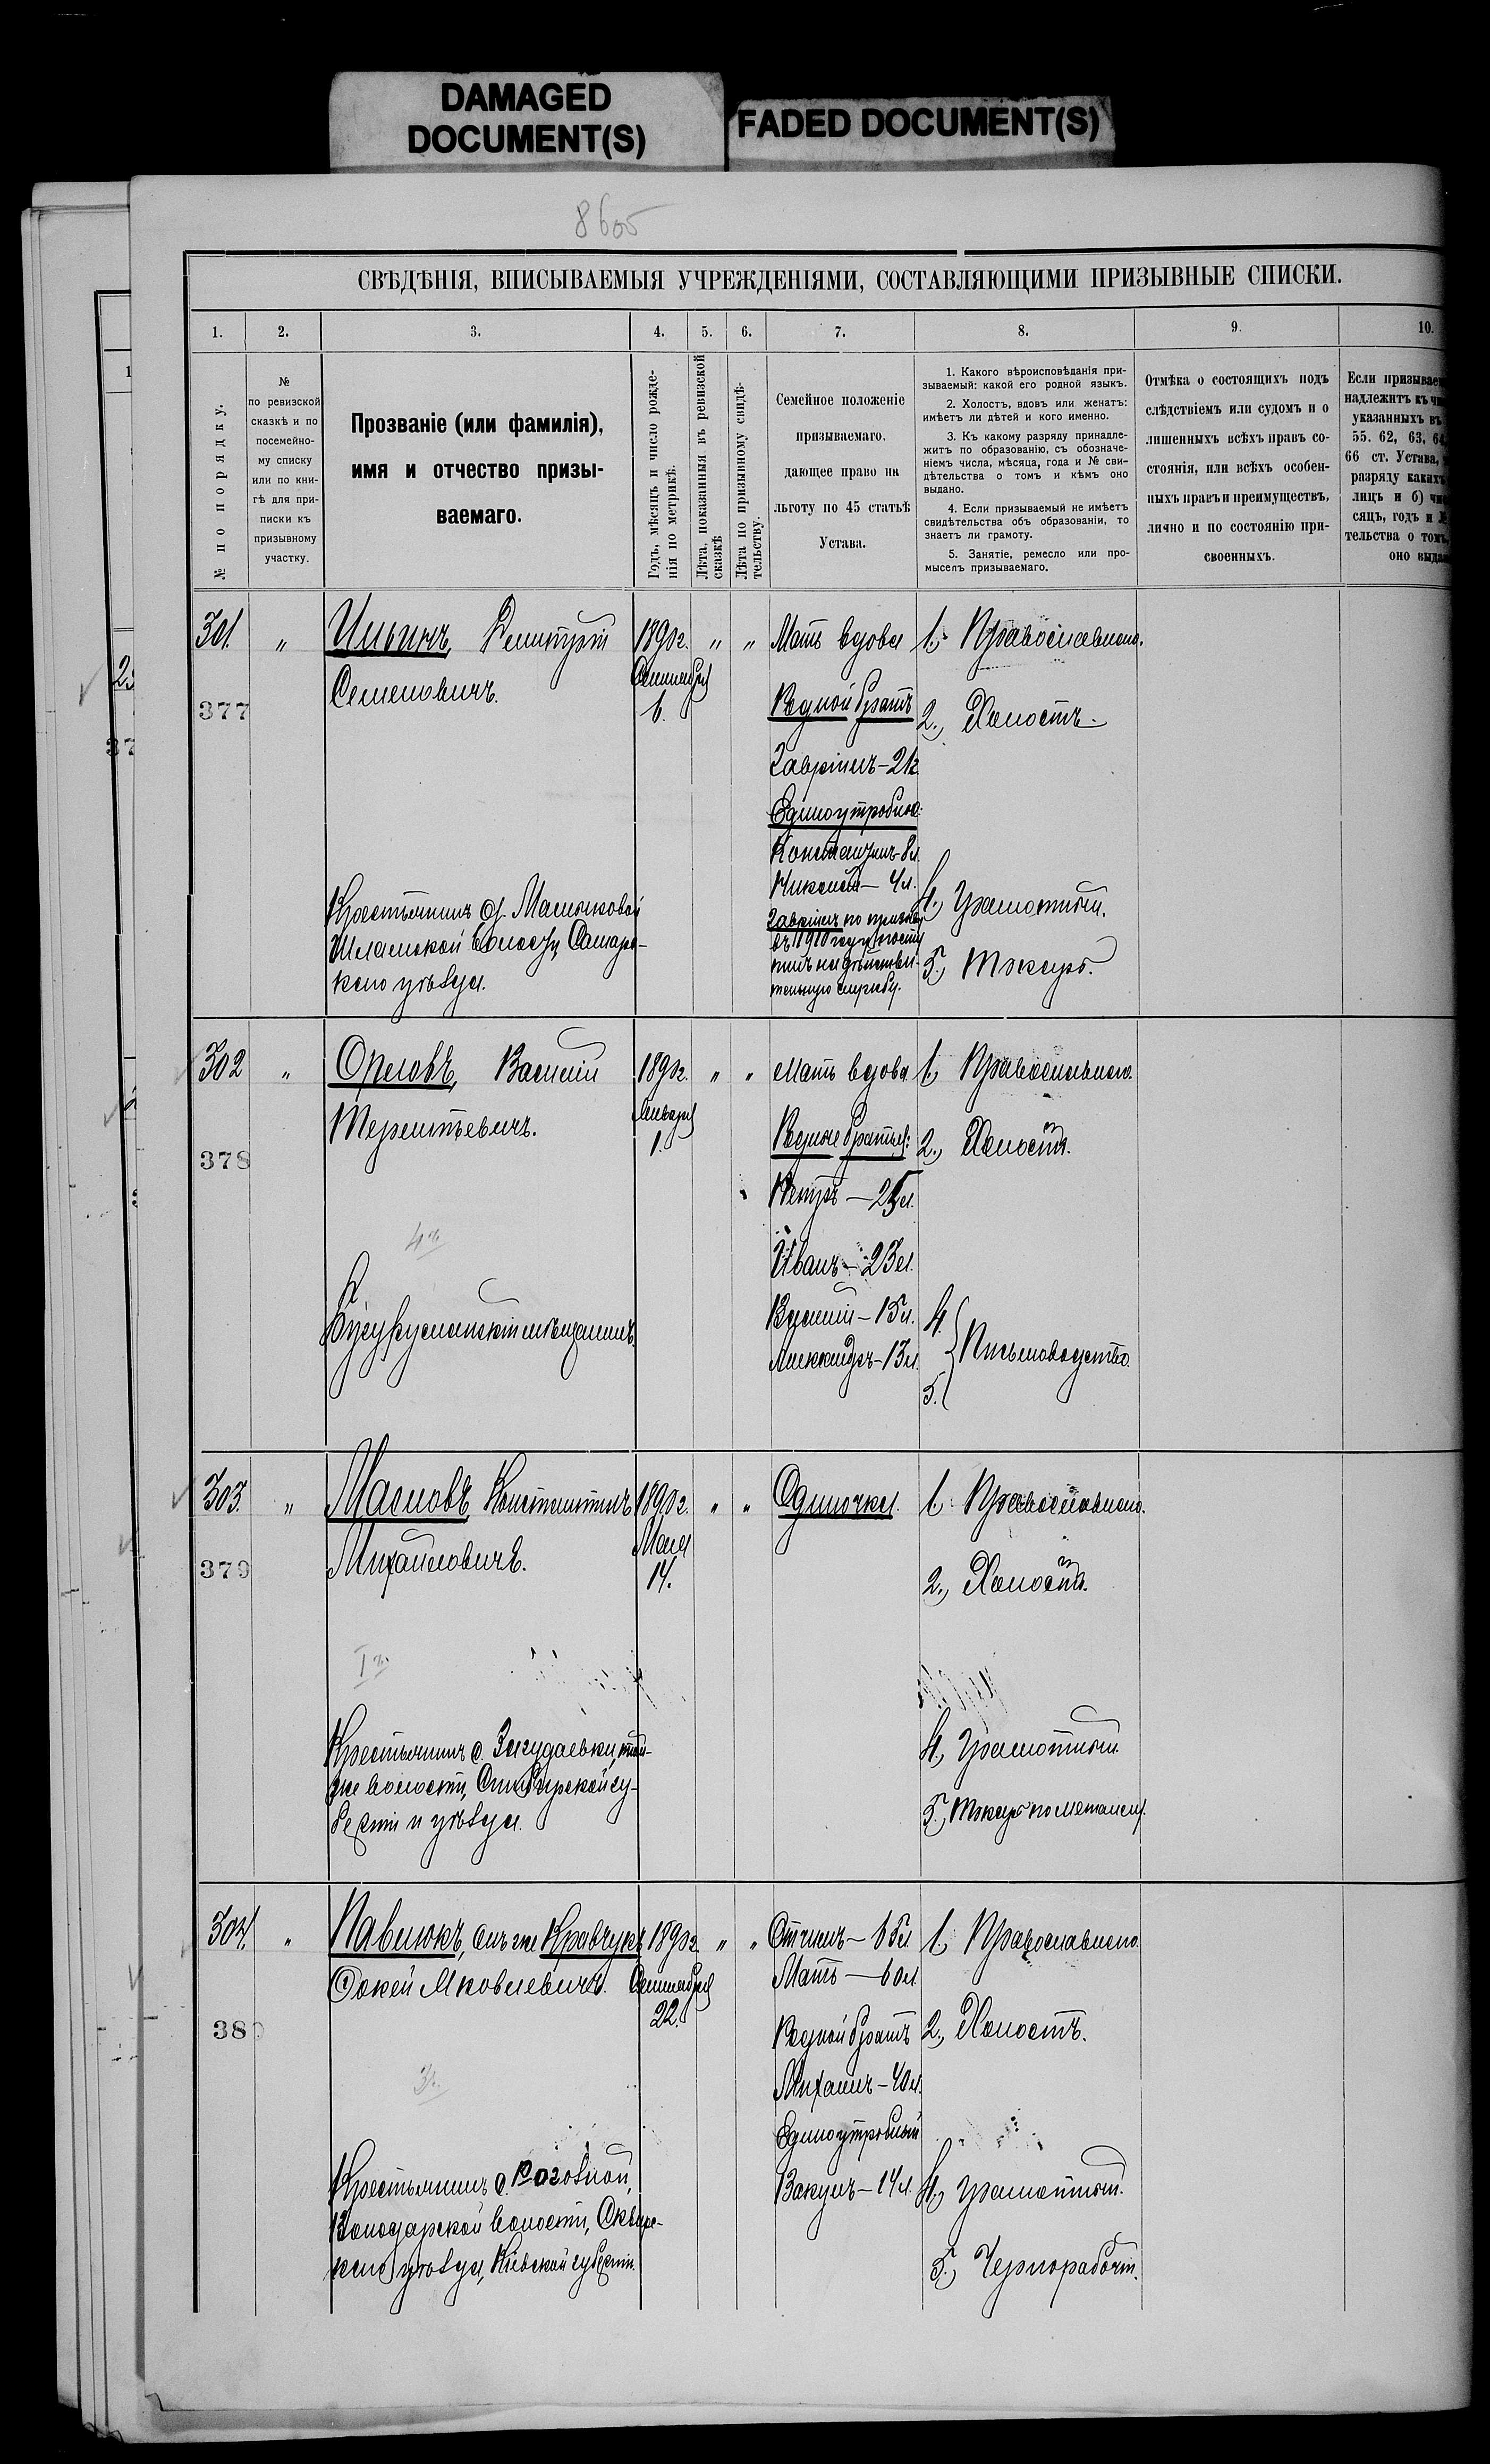 DAMAGED
DOCUMENT(S)
FADED DOCUMENT(S)
8605
СВѢДѢНІЯ, ВПИСЫВАЕМЫЯ УЧРЕЖДЕНІЯМИ, СОСТАВЛЯЮЩИМИ ПРИЗЫВНЫЕ СПИСКИ.
1. 2. 3. 4. 5. 6. 7. 8. 9. 10.
№ по порядку.
№
по ревизской
сказкѣ и по
посемейно-
му списку
или по кни-
гѣ для при-
писки къ
призывному
участку.
Прозваніе (или фамилія),
имя и отчество призы-
ваемаго.
Годъ, мѣсяцъ и число рожде-
нія по метрикѣ.
Лѣта, показанныя въ ревизской
сказкѣ
Лѣта по призывному свидѣ-
тельству.
Семейное положеніе
призываемаго,
дающее право на
льготу по 45 статьѣ
Устава.
1. Какого вѣроисповѣданія при-
зываемый: какой его родной языкъ.
2. Холостъ, вдовъ или женатъ:
имѣетъ ли дѣтей и кого именно.
3. Къ какому разряду принадле-
житъ по образованію, съ обозначе-
ніемъ числа, мѣсяца, года и № сви-
дѣтельства о томъ и кѣмъ оно
выдано.
4. Если призываемый не имѣетъ
свидѣтельства объ образованіи, то
знаетъ ли грамоту.
5. Занятіе, ремесло или про-
мыселъ призываемаго.
Отмѣка о состоящихъ подъ
слѣдствіемъ или судомъ и о
лишенныхъ всѣхъ правъ со-
стоянія, или всѣхъ особен-
ныхъ правъ и преимуществъ,
лично и по состоянію при-
своенныхъ.
Если призывае
надлежитъ къ
указанныхъ въ
55. 62, 63, 64
66 ст. Устава,
разряду какихъ
лицъ и б)
сяцъ, годъ и №
тельства о томъ,
оно выда
301. "
377
Ильинъ, Димитрій
Семеновичъ.
Крестьянинъ
Шламской волости, Самар-
скаго уѣзда.
1890г.
Сентября
6.
" "
Мать вдова
Родной братъ
Гавріилъ – 21г.
Единоутробные:
Константинъ – 8л.
Николай – 4л.
Гавріилъ по призыву
въ 1910 году посту
пилъ на дѣйстви-
тельную службу.
1. Православнаго.
2., Холостъ.
4., Грамотный.
5., Токарь.
302 "
378
Орловъ, Василій
Терентьевичъ.
4
Бугурусланскій мѣщанинъ.
1890г.
Января
1.
" "
Мать вдова
Родные братья:
Петръ – 25л.
Иванъ – 23л.
Василій – 15л.
Александръ – 13л.
1. Православнаго.
2., Холостъ.
4.
5.
Письмоводство.
303. "
379
Масловъ, Константинъ
Михайловичъ.
I
Крестьянинъ с. Загудаевки, той-
же волости, Симбирской гу-
берніи и уѣзда.
1890г.
Мая
14.
" "
Одиночка.
1. Православнаго.
2., Холостъ.
4., Грамотный.
5., Токарь по металлу.
304. "
380
Павлюкъ, онъ же Кравчукъ
Фокей Яковлевичъ.
3
Крестьянинъ с. Розовной,
Володарской волости, Сквир-
скаго уѣзда, Кіевской губерніи.
1890г.
Сентября
22.
" "
Отчимъ – 65л.
Мать – 60л.
Родной братъ
Михаилъ – 40л.
Единоутробный
Вакулъ – 14л.
1. Православнаго.
2., Холостъ.
4., Грамотный.
5., Чернорабочій.